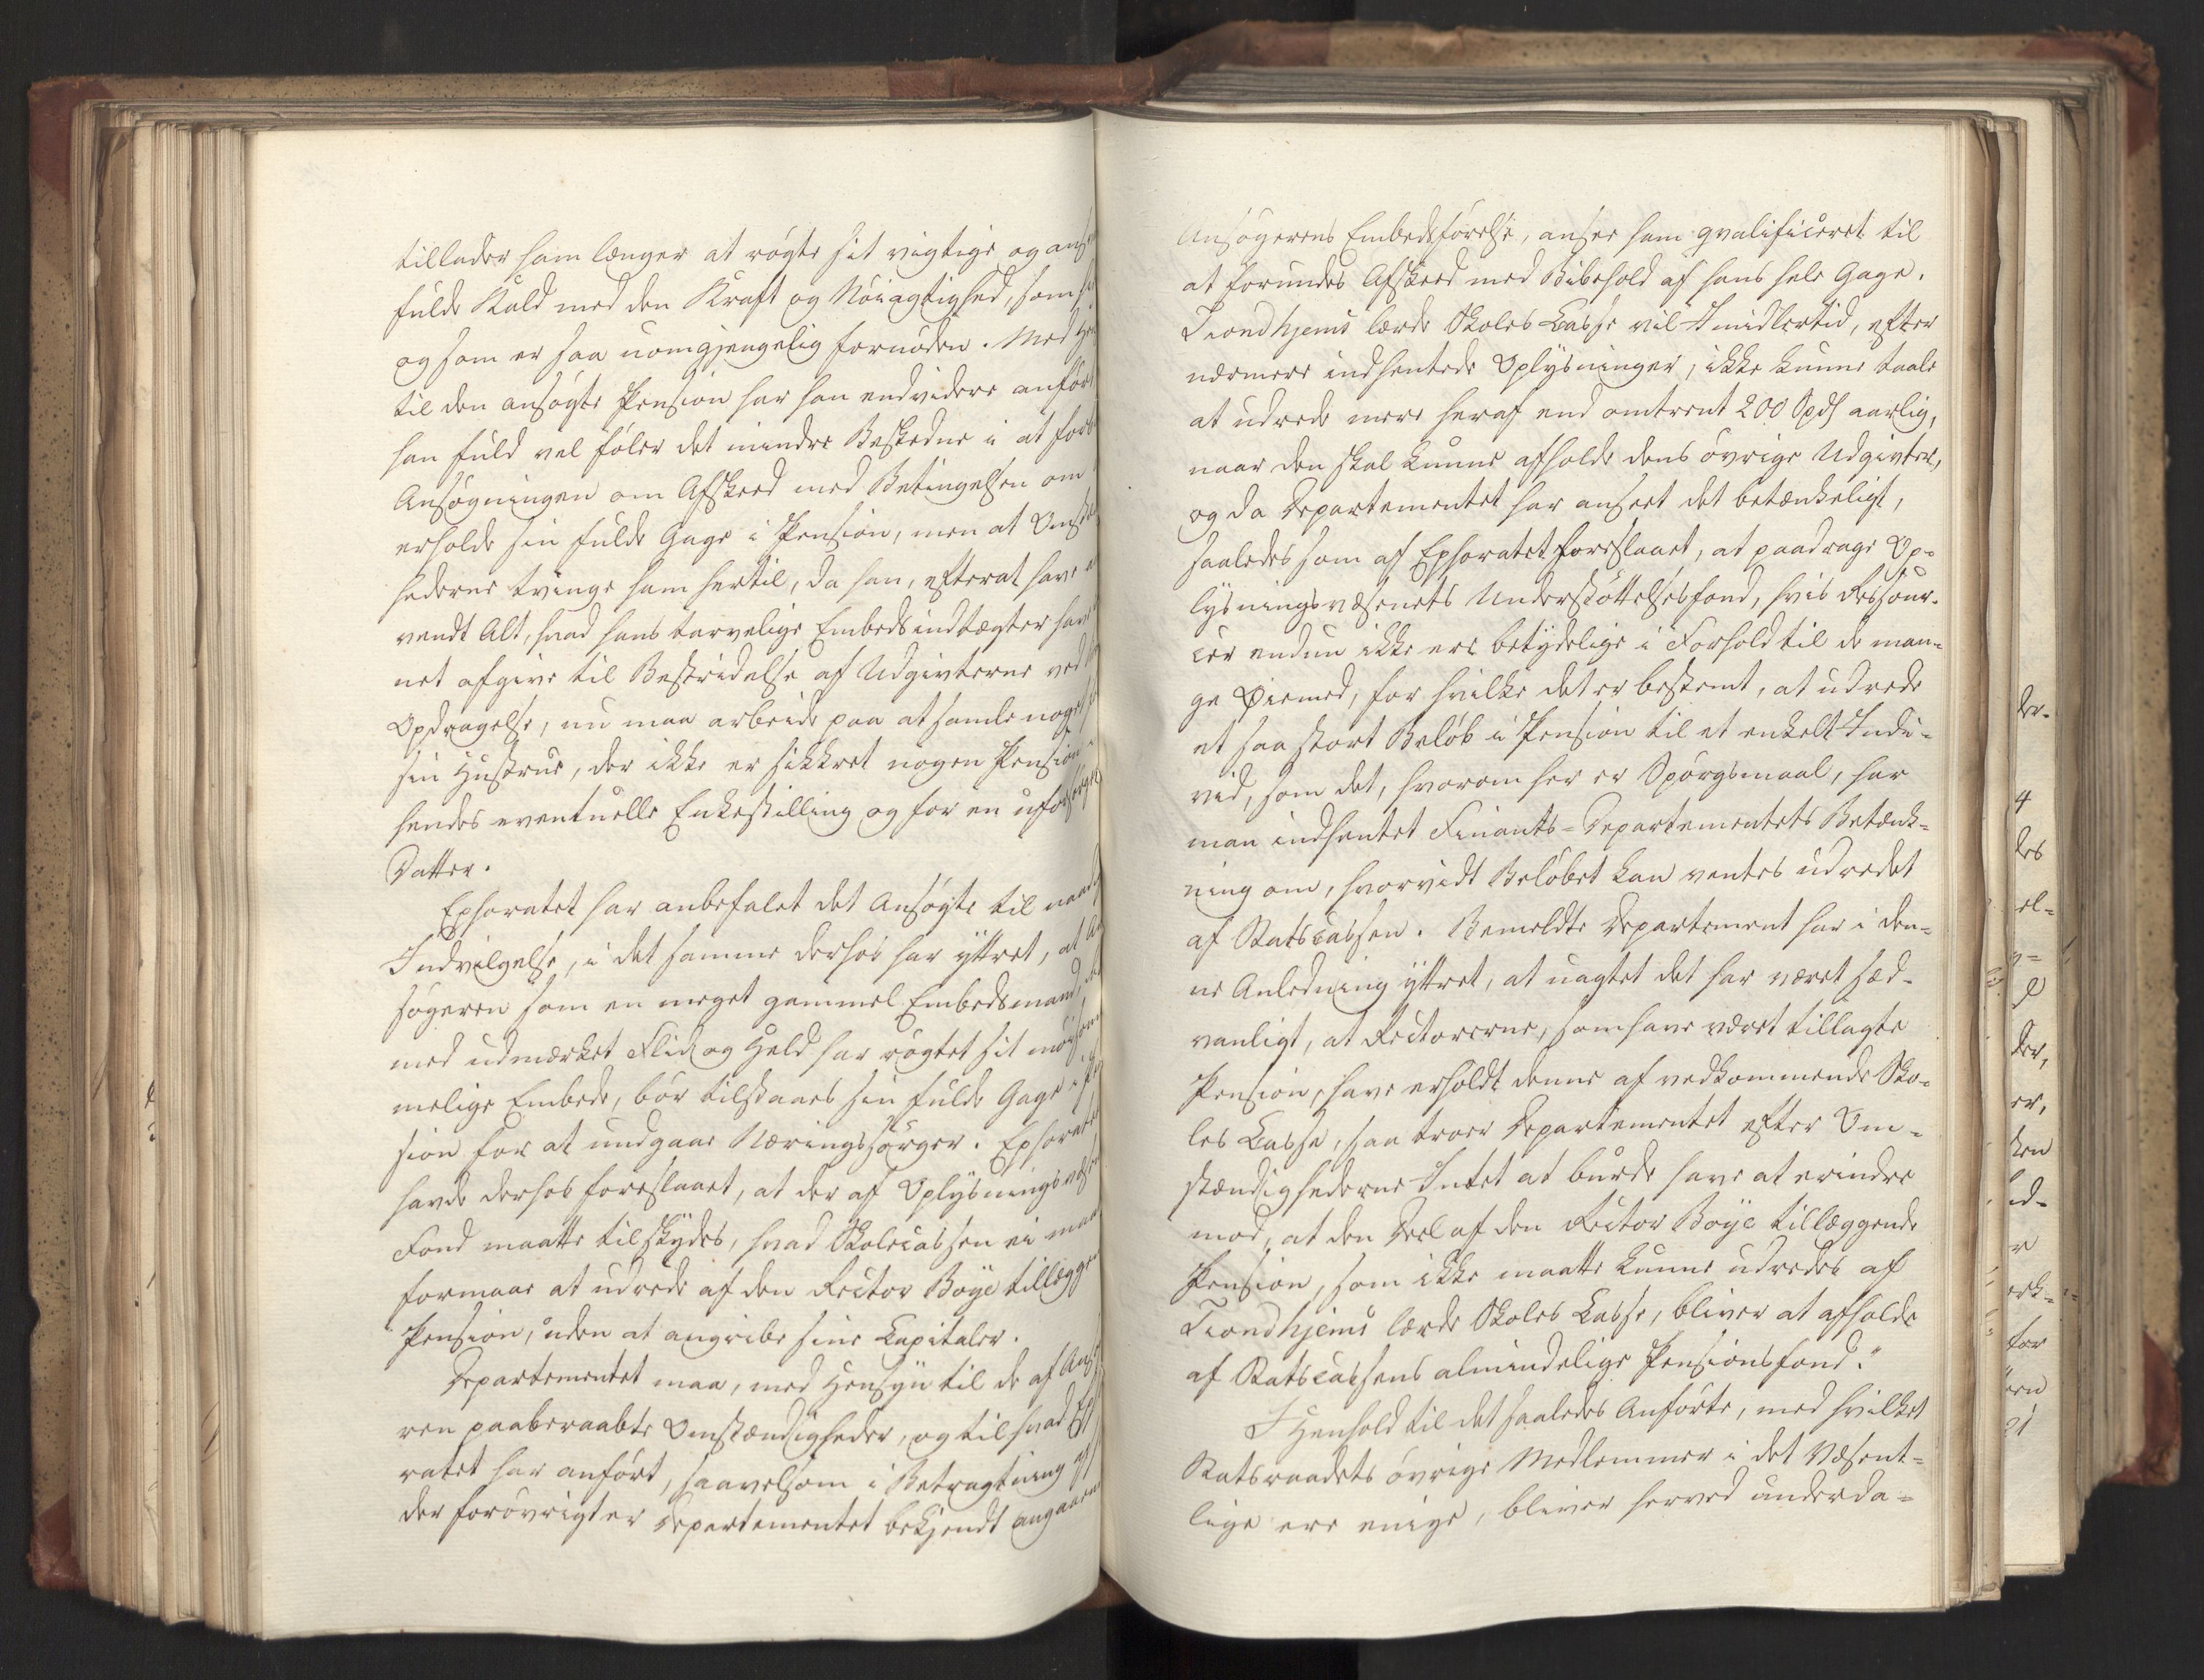 tillader ham længer at røgte sit vigtige og ans
fulde Kald med den Kraft og Nøiagtighed, som
og som er saa uomgjengelig fornøden. Med Hen
til den ansøgte Pension har han endvidere anført
han fuld vel føler det mindre Beskedne i at forb
Ansøgningen om Afskeed med Betingelsen om
erholde sin fulde Gage i Pension, men at Omstæ
hederne tvinge ham hertil, da han, efterat have a
vendt Alt, hvad hans tarvelige Embedsindtægter have
net afgive til Bestridelse af Udgivterne ved
Opdragelse, nu maa arbeide paa at samle noget
sin Hustrue, der ikke er sikkret nogen Pension
hendes eventuelle Enkestilling og for en uforsørget
Datter.
Ephoratet har anbefalet det Ansøgte til naadig
Indvilgelse, i det samme derhos har yttret, at An
søgeren som en meget gammel Embedsmand,
med udmærket Flid og Held har røgtet sit møisom
melige Embede, bør tilstaaes sin fulde Gage i Pen
sion for at undgaae Næringssorger. Ephoratet
havde derhos foreslaaet, at der af Oplysningsvæsen
Fond maatte tilskydes, hvad Skolecassen ei maa
formaae at udrede af den Rector Boye tillægge
Pension, uden at angribe sine Capitaler.
Departementet maa, med Hensyn til de af Ansø
ren paaberaabte Omstændigheder, og til hvad Eph
ratet har anført, saavelsom i Betragtning af
der forøvrigt er Departementet bekjendt angaaen
Ansøgerens Embedsførelse, ansee ham qvalificeret til
at forundes Afskeed med Bibehold af hans hele Gage.
Trondhjems lærde Skoles Casse vil Imidlertid, efter
nærmere indhentede Oplysninger, ikke kunne taale
at udrede mere heraf end omtrent 200 Spd aarlig,
naar den skal kunne afholde dens øvrige Udgivter,
og da Departementet har anseet det betænkeligt,
saaledes som af Ephoratet foreslaaet, at paadrage Op-
lysningsvæsenets Understøttelsesfond, hvis Ressour-
cer endnu ikke ere betydelige i Forhold til de man-
ge Øiemed, for hvilke det er bestemt, at udrede
et saa stort Beløb i Pension til et enkelt Indi-
vid, som det, hvorom her er Spørgsmaal, har
man indhentet Finants-Departementets Betænk-
ning om, hvorvidt Beløbet kan ventes udredet
af Statscassen. Bemeldte Departement har i den-
ne Anledning yttret, at uagtet det har været sæd-
vanligt, at Rectorerne, som have været tillagte
Pension, have erholdt denne af vedkommende Sko-
les Casse, saa troer Departementet efter Om-
stændighederne Intet at burde have at erindre
mod, at den Deel af den Rector Boye tillæggende
Pension, som ikke maatte kunne udredes af
Trondhjems lærde Skoles Casse, bliver at afholde
af Statscassens almindelige Pensionsfond."
I Henhold til det saaledes Anførte, med hvilket
Statsraadets øvrige Medlemmer i det Væsent-
lige ere enige, bliver herved underda-